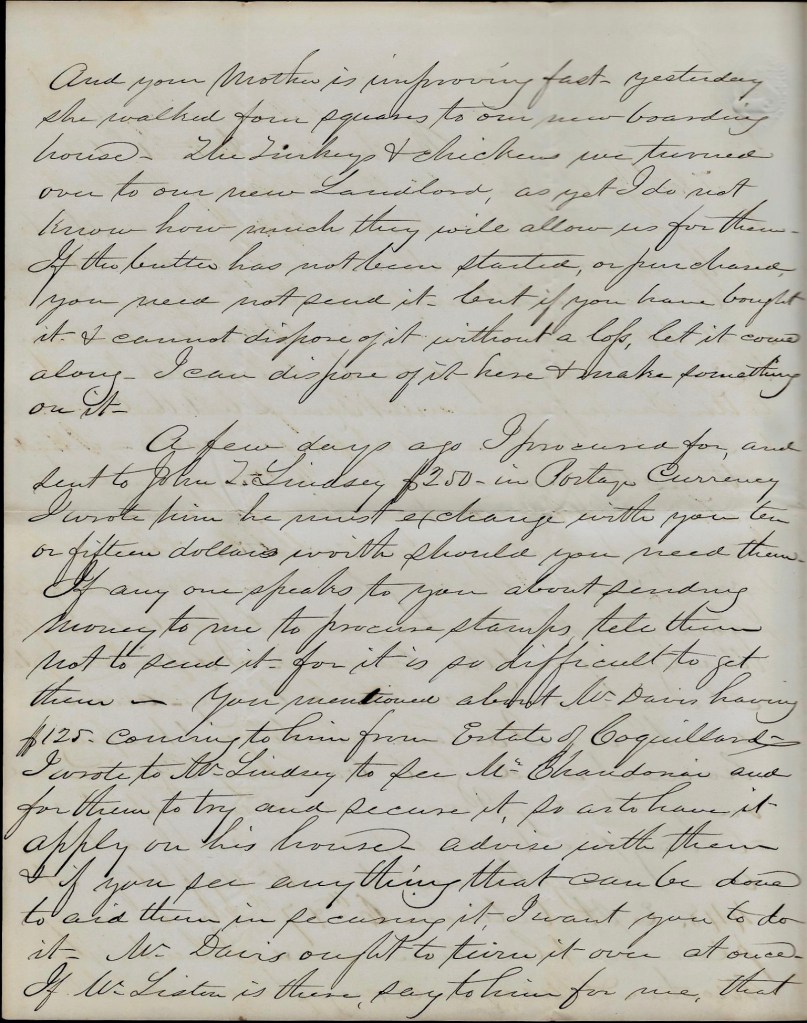 And your Mother is improving fast- yesterday
she walked four squares to our new boarding
house- The Turkeys & chickens we turned
over to our new Landlord, as yet I do not
know how much they will allow us for them-
If the butter has not been started, or purchased,
you need not send it- but if you have bought
it- & cannot dispose of it without a loss, let it come
along- I can dispose of it here & make something
on it-
A few days ago I procured for, and
sent to John T. Lindsey $250- in Postage Currency
I wrote him he must exchange with you ten
or fifteen dollars worth should you need them-
If any one speaks to you about sending
money to me to procure stamps, tell them
not to send it- for it is so difficult to get
them - You mentioned about Mr Davis having
$125- coming to him from Estate of Coquillard-
I wrote to Mr Lindsey to see Mr Chandonai and
for them to try and secure it, so as to have it
apply on his house- advise with them
& if you see anything that can be done
to aid them in securing it, I want you to do
it- Mr Davis ought to turn it over at once-
If Mr Liston is there, say to him for me, that